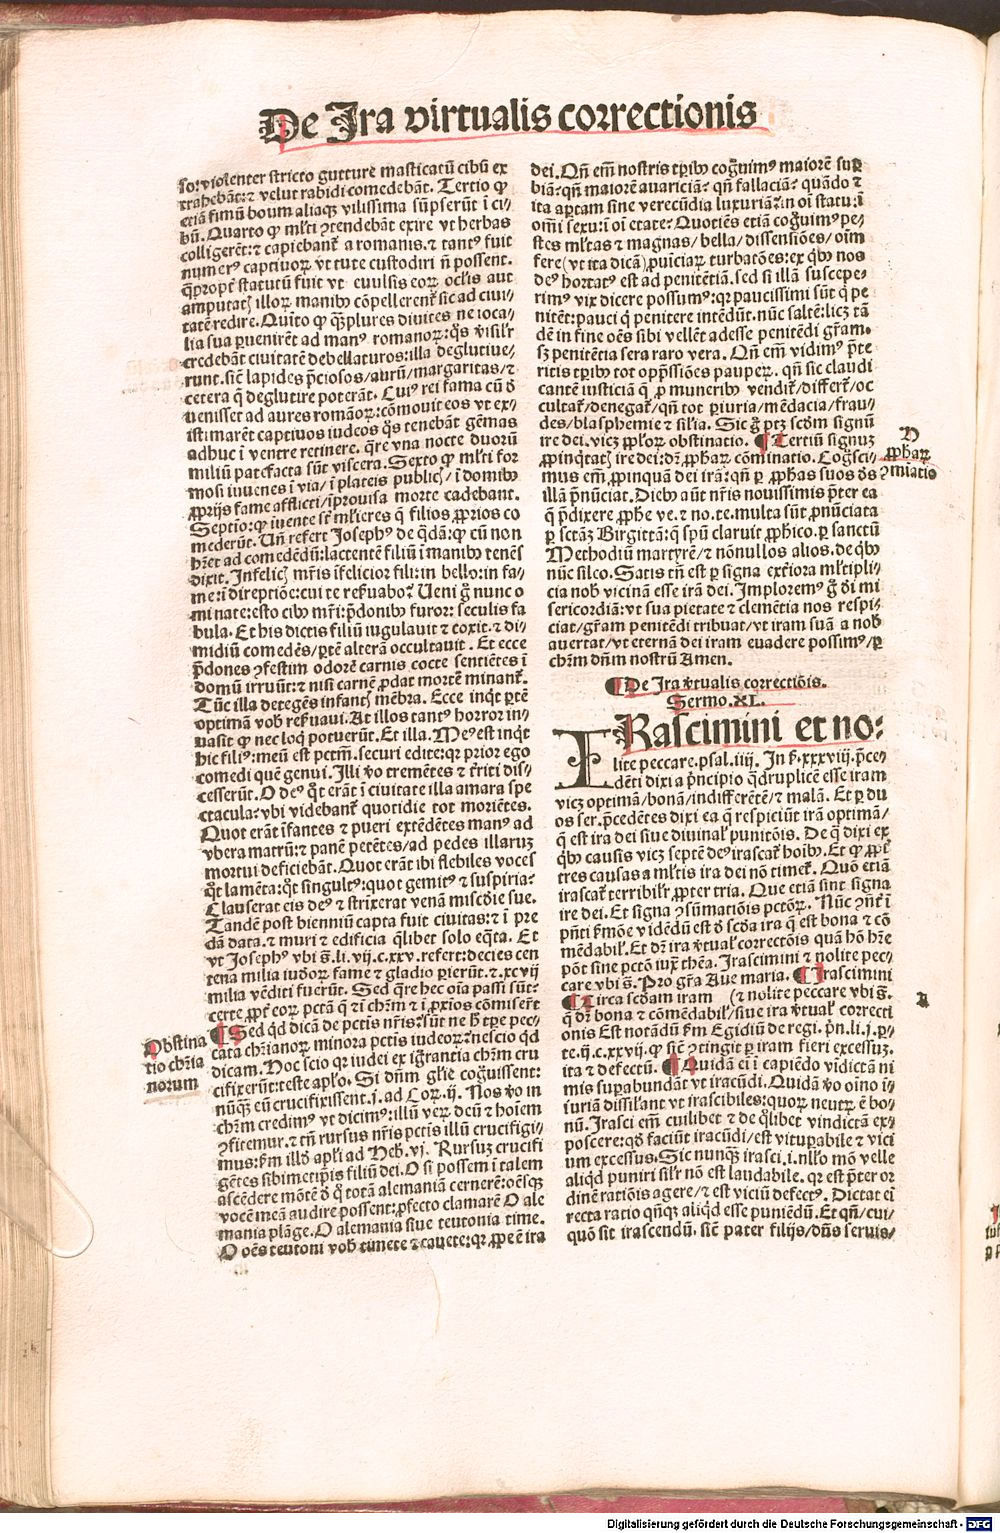 De Ira virtualis correctionis
so: violenter stricto gutture masticatū cibū ex
trahebāt: ⁊ velut rabidi comedebāt. Tertio ꝙ
etiā fimū boum aliaqꝫ vilissima sūpserūt ī ci/
bū. Quarto ꝙ ml'ti ꝯtendebāt exire vt herbas
colligerēt: ⁊ capiebant᷑ a romanis. ⁊ tantꝰ fuit
numerꝰ captiuoꝝ vt tute custodiri nō possent.
q̄propt᷑ statutū fuit vt euulsis eoꝝ oclis aut
amputatꝭ illoꝝ manibꝰ cōpellerent᷑ sic ad ciui/
tatē redire. Quīto ꝙ q̄ꝫplures diuites ne ioca/
lia sua ꝑuenirēt ad manꝰ romanoꝝ: q̄s visil'r
credebāt ciuitatē debellaturos: illa deglutiue/
runt. sicut lapides p̄ciosos/aurū/margaritas/⁊
cetera q̄ deglutire poterāt. Cuiꝰ rei fama cū d
uenisset ad aures romāoꝝ: cōmouit eos vt ex/
istimarēt captiuos iudeos q̄s tenebāt gēmas
adhuc ī ventre retinere. q̄re vna nocte duorū
miliū patefacta sūt viscera. Sexto ꝙ ml'ti for
mosi iuuenes ī via/ī plateis publicꝭ/ī domibꝰ
ꝓprijs fame afflicti/īprouisa morte cadebant.
Septio: ꝙ iuente st̄ ml'ieres q̄ filios ꝓprios co
mederūt. Un̄ refert Josephꝰ de q̄dā: ꝙ cū non
hr̄et ad comedēdū: lactentē filiū ī manibꝰ tenēs
dixit. Infelicꝭ mr̄is īfelicior fili: in bello: in fa/
me: ī direptiōe: cui te reẜuabo? Ueni g̊ nunc o
mi nate: esto cibꝰ mr̄i: p̄donibꝰ furor: seculis fa
bula. Et his dictis filiū iugulauit ⁊ coxit. ⁊ di/
midiū comedēs/ꝑtē alterā occultauit. Et ecce
p̄dones ꝯfestim odorē carnis cocte sentiētes ī
domū irruūt: ⁊ nisi carnē ꝓdat mortē minant᷑.
Tūc illa detegēs infantꝭ mēbra. Ecce inqt ꝑtē
optimā vob reẜuaui. At illos tantꝰ horror in/
uasit ꝙ nec loq̄ potuerūt. Et illa. Meꝰ est inq̄t
hic filiꝰ: meū est pctm̄. securi edite: qꝛ prior ego
comedi quē genui. Illi v̊o tremētes ⁊ t̄riti dis/
cesserūt. O deꝰ q̄t erāt ī ciuitate illa amara spe
ctacula: vbi videbant᷑ quotidie tot moriētes.
Quot erāt īfantes ⁊ pueri extēdētes manꝰ ad
vbera matrū: ⁊ panē petētes/ad pedes illaruꝫ
mortui deficiebāt. Quot erāt ibi flebiles voces
q̊t lamēta: q̊t singultꝰ: quot gemitꝰ ⁊ suspiria?
Clauserat eis deꝰ ⁊ strixerat venā miscdie sue.
Tandē post bienniū capta fuit ciuitas: ⁊ ī pre
dā data. ⁊ muri ⁊ edificia q̄libet solo eq̄ta. Et
vt Josephꝰ vbi s̄. li. vij. c. xxv. refert: decies cen
tena milia iudoꝝ fame ⁊ gladio ꝑierūt. ⁊ xcvij
milia vēditi fuerūt. Sed q̄re hec oīa passi sūt?
certe ꝓpt᷑ eoꝝ pctā q̄ ī chm̄ ⁊ ī ꝓxīos cōmiserūt
¶ Sed qd dicā de pctis nr̄is? sūt ne hͦ tꝑe pec/
cata chr̄ianoꝝ minora pctis iudeoꝝ? nescio qd
dicam. Hoc scio qꝛ iudei ex īgrantia chm̄ cru
cifixerūt: teste apl'o. Si dn̄m gl'ie cog̊uissent:
nūqꝫ eū crucifixissent. j. ad Coꝝ. ij. Nos v̊o in
chm̄ credimꝰ vt dicimꝰ: illū veꝝ deū ⁊ hoiem
ꝯfitemur. ⁊ tn̄ rursus nr̄is pctis illū crucifigi/
mus: fm illd apl'i ad Heb. vj. Rursuꝫ crucifi
gētes sibimetip̄is filiū dei. O si possem ī talem
ascēdere mōtē d q̊ totā alemaniā cernerē: oēsqꝫ
vocē meā audire possent: ꝓfecto clamarē O ale
mania plāge. O alemania siue teutonia time.
O oēs teutoni vob timete ⁊ cauete: qꝛ ꝓpe ē ira
Obstina
tio chr̄ia
norum
dei. Qn̄ em̄ nostris tꝑibꝰ cog̊uimꝰ maiorē suꝑ
biā? qn̄ maiorē auariciā? qn̄ fallaciā? quādo ⁊
ita aꝑtam sine verecūdia luxuriā? in oī statu: ī
om̄i sexu: ī oī etate? Quotiēs etiā cog̊uimꝰ pe/
stes ml'tas ⁊ magnas/bella/dissensiōes/oīm
fere (vt ita dicā) ꝓuīciaꝝ turbatōes: ex q̄bꝰ nos
deꝰ hortatꝰ est ad penitētiā. sed si illā suscepe/
rimꝰ vix dicere possumꝰ: qꝛ paucissimi sūt q̄ pe
nitēt: pauci q̄ penitere intēdūt. nūc saltē: licꝫ tā
dē in fine oēs sibi vellēt adesse penitēdi gr̄am.
sꝫ penitētia sera raro vera. Qn̄ em̄ vidimꝰ p̄te
ritis tꝑibꝰ tot opp̄ssiōes pauperꝝ. qn̄ sic claudi
cantē iusticiā q̄ ꝓ muneribꝰ vendit᷑/differt᷑/oc
cultat᷑/denegat᷑/qn̄ tot ꝑiuria/mēdacia/frau/
des/blasphemie ⁊ sil'ia. Sic g̊ ptꝫ scdm signū
ire dei. vicꝫ ppl'oꝝ obstinatio. ¶ Tertiū signuꝫ
ꝓpinq̄tatꝭ ire dei: dr̄ ꝓphaꝝ cōminatio. Cog̊sci/
mus em̄ ꝓpinquā dei irā: qn̄ ꝑ ꝓphas suos d̊s
illā p̄nūciat. Diebꝰ aūt nr̄is nouissimis p̄ter ea
q̄ p̄dixere ꝓphe ve. ⁊ no. te. multa sūt ꝓnūciata
ꝑ sctāꝫ Birgittā: q̄ spū claruit ꝓphico. ꝑ sanctū
Methodiū martyrē/⁊ nōnullos alios. de q̄bꝰ
nūc sileo. Satis tn̄ est ꝑ signa ext᷑iora ml'tipli/
cia nob vicinā esse irā dei. Imploremꝰ g̊ d̊i mi
sericordiā: vt sua pietate ⁊ clemētia nos respi/
ciat/gr̄am penitēdi tribuat/vt iram suā a nob
auertat/vt eternā dei iram euadere possimꝰ/ꝑ
chm̄ dn̄m nostrū Amen.
D
ꝓphaꝝ
ꝯmiatio
¶ De Ira v̊tualis correctiōis.
Sermo. XL.
IRascimini et no:
lite peccare. psal. iiij. In ẜ. xxxviij. p̄ce/
dēti dixi a p̄ncipio q̄druplicē esse iram
vicꝫ optimā/bonā/indifferētē/⁊ malā. Et ꝑ du
os ser. p̄cedētes dixi ea q̄ respiciūt irā optimā/
q̄ est ira dei siue diuinal' punitōis. De q̄ dixi ex
q̄bꝰ causis vicꝫ septē deꝰ irascat᷑ hoibꝰ. Et ꝙ ꝓpt᷑
tres causas a ml'tis ira dei nō timet᷑. Quō etiā
irascat᷑ terribil'r ꝓpter tria. Que etiā sint signa
ire dei. Et signa ꝯsūmatiōis pctōꝝ. Nūc ꝯn̄t᷑ ī
pn̄ti ẜmōe vidēdū est d̊ scd̄a ira q̄ est bona ⁊ cō
mēdabil'. Et dr̄ ira v̊tual' correctōis quā hō hr̄e
pōt sine pctō iux̄ thēa. Irascimini ⁊ nolite pec/
care vbi s̄. Pro gr̄a Aue maria. ¶ Irascimini
¶ Circa scdam iram (⁊ nolite peccare vbi s̄.
q̄ dr̄ bona ⁊ cōmēdabil'/siue ira v̊tual' correcti
onis Est notādū fm Egidiū de regi. pn̄. li. j. ꝑ/
te. ij. c. xxvij. ꝙ sic ꝯtingit ꝑ iram fieri excessuꝫ.
ita ⁊ defectū. ¶ Quidā ei ī capiēdo vidictā ni
mis suꝑabundāt vt iracūdi. Quidā v̊o oīno ī/
iuriā dissil'ant vt irascibiles: quoꝝ neutꝝ ē bo/
nū. Irasci em̄ cuilibet ⁊ de q̊libet vindictā ex/
poscere: qd̊ faciūt iracūdi/est vituꝑabile ⁊ vici
um excessus. Sic nunqꝫ irasci. i. nll'o mō velle
aliqd puniri sil'r nō est laudabile. qꝛ est p̄ter or
dinē ratiōis agere/⁊ est viciū defectꝰ. Dictat ei
recta ratio qn̄qꝫ aliqd esse puniēdū. Et qn̄/cui/
quō sit irascendū. sicut pater filijs/dn̄s seruis/
A
Digitalisierung gefördert durch die Deutsche Forschungsgemeinschaft - DFG